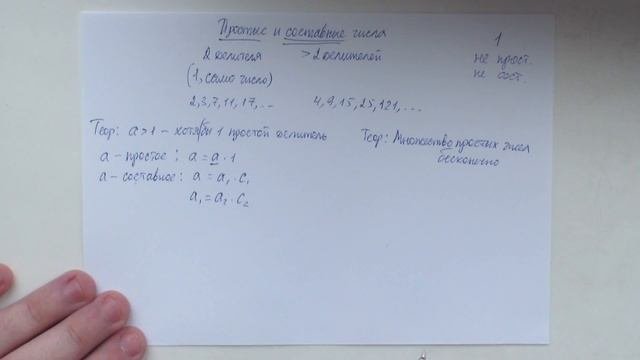 Простые и составные числа
2 делителя
(1, само число)
2, 3, 7, 11, 17, ...
> 2 делителей
4, 9, 15, 25, 121, ...
1
не прост.
не сост.
Теор: a > 1 – хотя бы 1 простой делитель
a – простое ; a = a · 1
a – составное : a = a₁ · c₁
a₁ = a₂ · c₂
Теор: Множество простых чисел
бесконечно